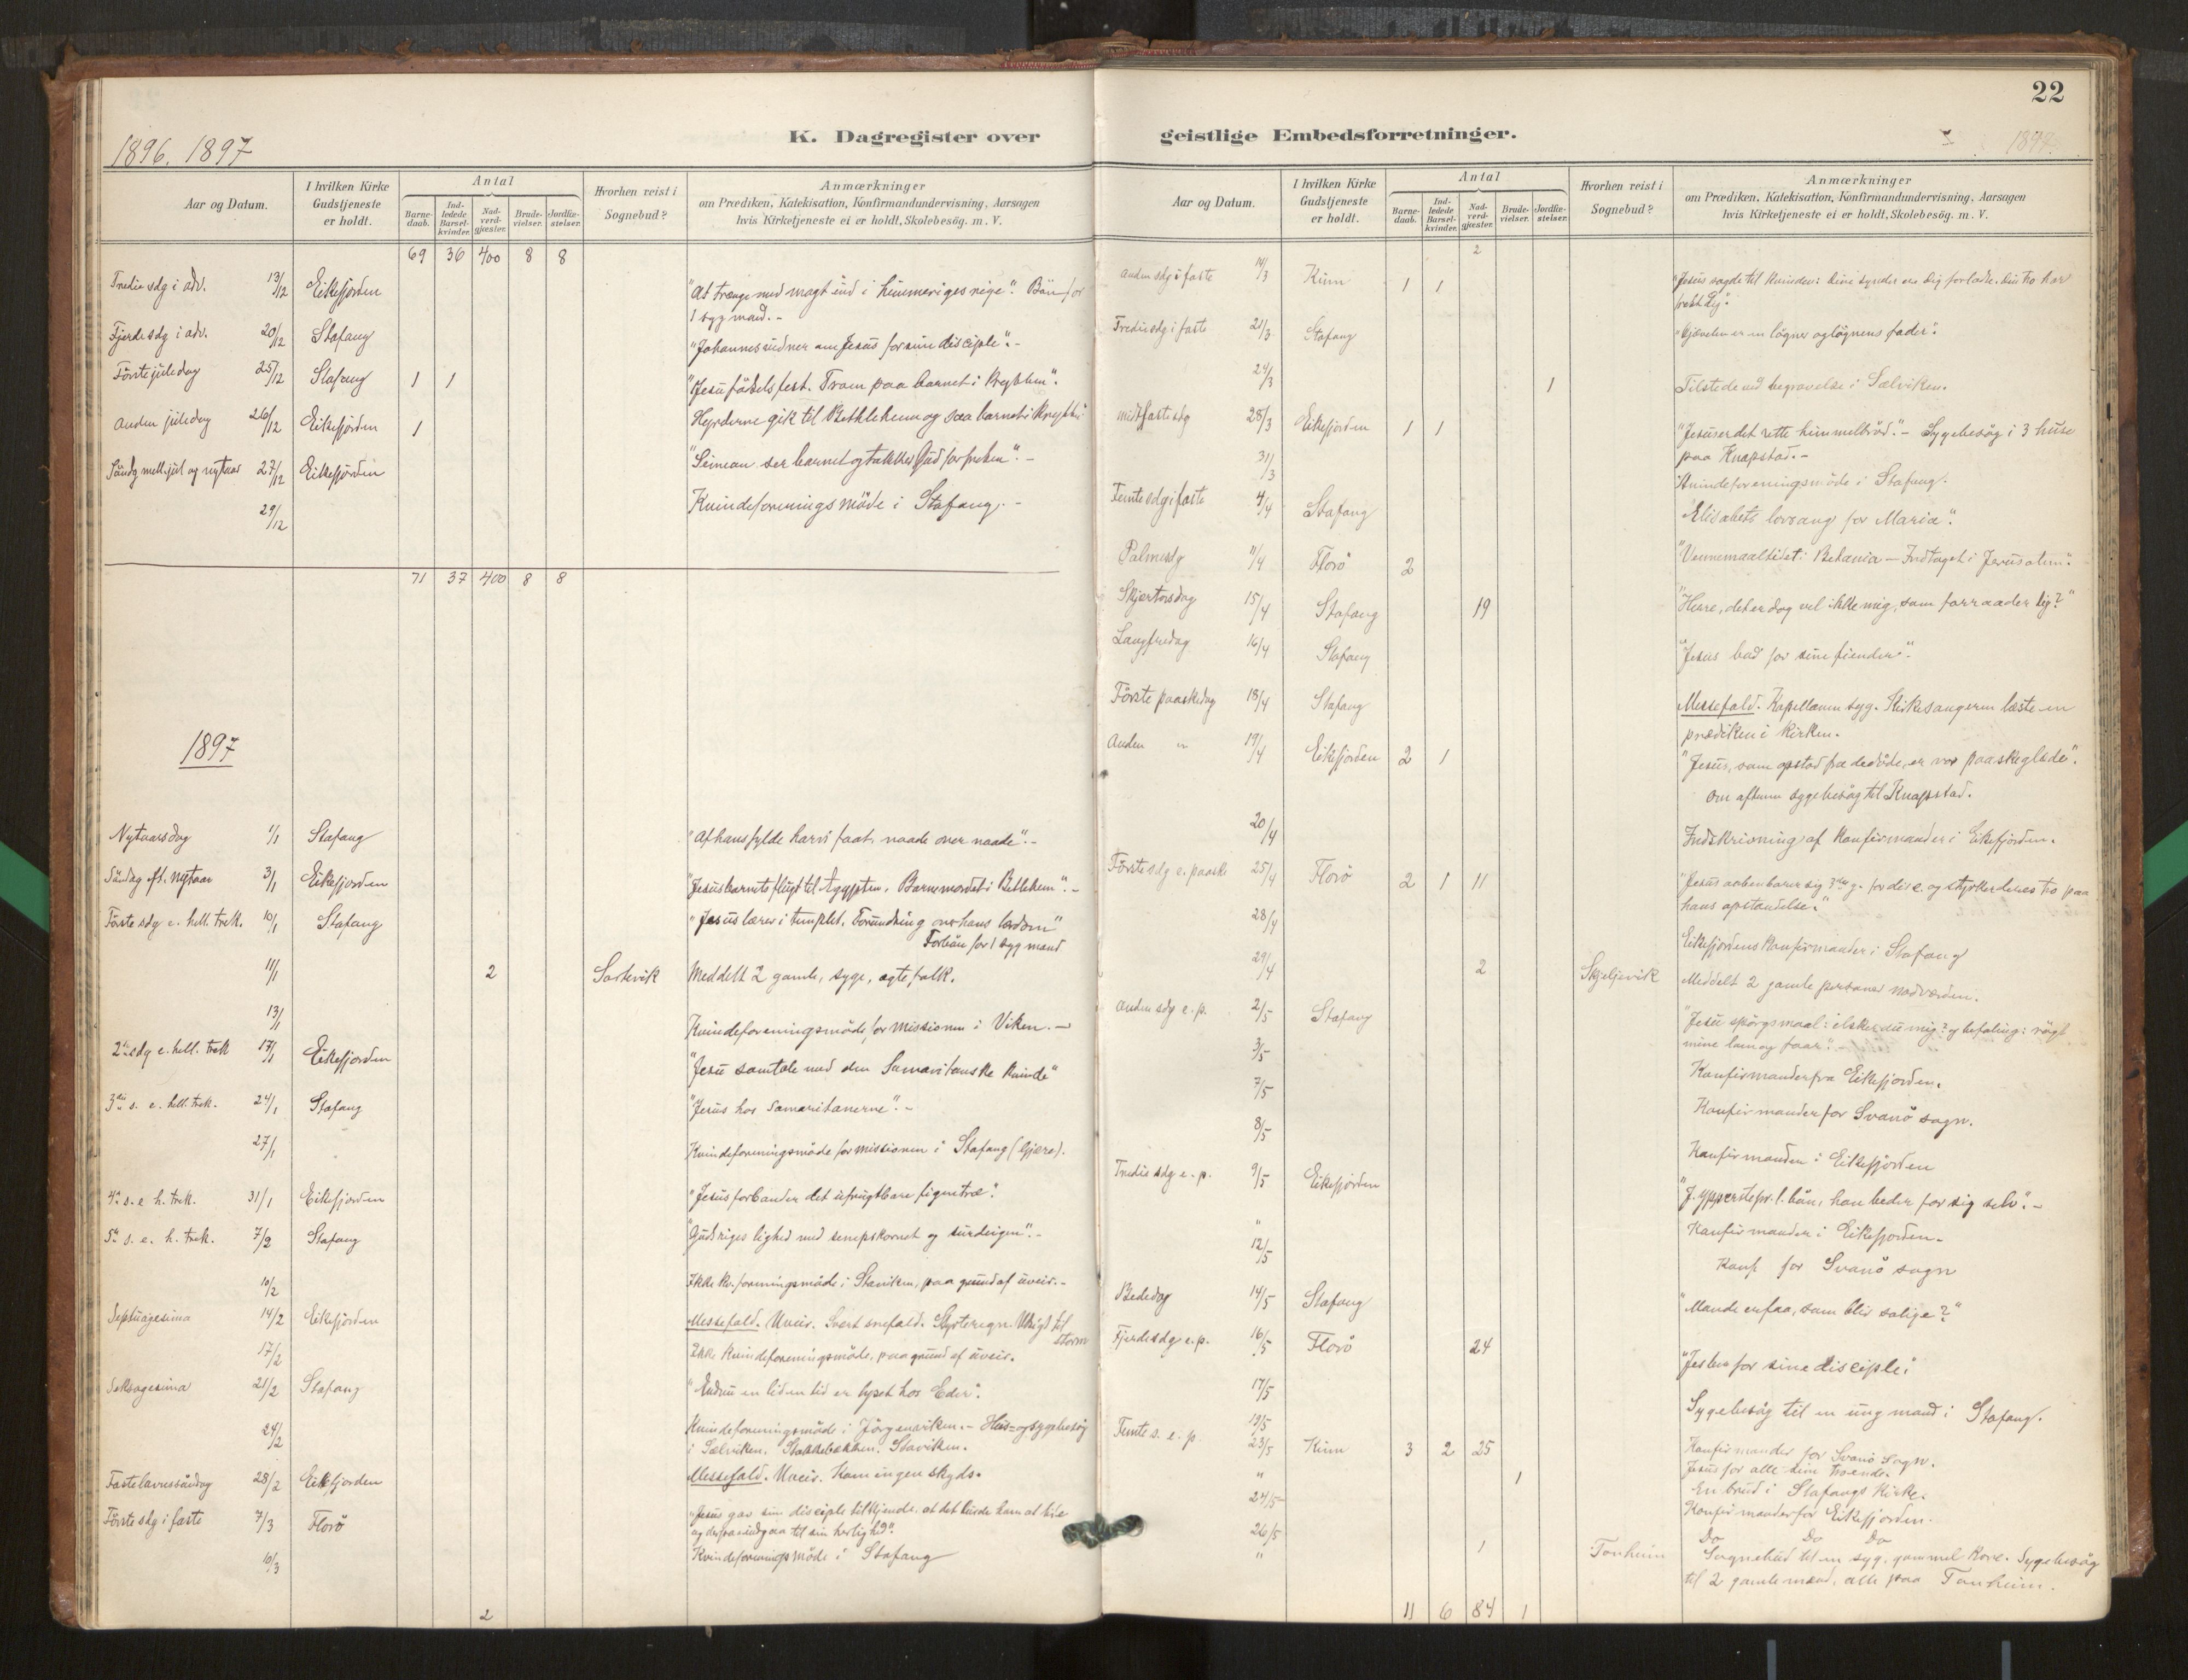 22
K. Dagregister over geistlige Embedsforretninger.
1896. 1897
1897.
Aar og Datum.
I hvilken Kirke Gudstjeneste er holdt.
Antal
Barne-daab.
Ind-ledede Barsel-kvinder.
Nad-verd-gjæster.
Brude-vielser.
Jordfæ-stelser.
Hvorhen reist i Sognebud?
Anmærkninger
om Prædiken, Katekisation, Konfirmandundervisning, Aarsagen
hvis Kirketjeneste ei er holdt, Skolebesög. m. V.
69 36 400 8 8
Tredie sdg i adv. 13/12 Eikefjorden "At trænge med magt ind i himmeriges rige". Bön for
1 syg mand. -
Fjerde sdg i adv. 20/12 Stafang "Johannes vidner om Jesus for sine disciple". -
Förste juledag 25/12 Stafang 1 1 "Jesu födselsfest. Troen paa barnet i krybben".
Anden juledag 26/12 Eikefjorden 1 Hyrderne gik til Bethlehem og saa barnet i krybben
Söndg mell. jul og nytaar 27/12 Eikefjorden "Simeon ser barnet og takker Gud for freden". -
29/12 Kvindeforeningsmöde i Stafang. -
71 37 400 8 8
1897
Nytaarsdag 1/1 Stafang "Af hans fylde har vi faat naade over naade". -
Söndag eft. nytaar 3/1 Eikefjorden "Jesusbarnets flugt til Ægypten. Barnemordet i Betlehem". -
Förste sdg e. hell. trek. 10/1 Stafang "Jesus lærer i templet. Forundring over hans lærdom"
Forbön for 1 syg mand
11/1 2 Meddelt 2 gamle, syge, ægtefolk.
13/1 Kvindeforeningsmöde for missionen i Viken. -
2den sdg e. hell. trek 17/1 Eikefjorden "Jesu samtale med den Samaritanske kvinde"
3die s. e. hell. trek. 24/1 Stafang "Jesus hos Samaritanerne". -
27/1 Kvindeforeningsmöde for missionen i Stafang (Gjære).
4de s. e h. trek. 31/1 Eikefjorden "Jesus forbander det ufrugtbare figentræ".
5te s. e. h. trek. 7/2 Stafang "Guds riges lighed med senepskornet og surdeigen". -
10/2 Ikke kv. foreningsmöde i Staviken, paa grund af uveir. -
Septuagesima 14/2 Eikefjorden Messefald. Uveir. Svert snefald. Styrteregn. Uligt til
storm
17/2 Ikke kvindeforeningsmöde, paa grund af uveir.
Seksagesima 21/2 Stafang "Endnu en liden tid er lyset hos Eder".
24/2 Kvindeforeningsmöde i Jörgenviken. - Hus- og sygebesög
i Sælviken. Stakkebakken. Staviken.
Fastelavnssöndag 28/2 Eikefjorden Messefald. Uveir. Kom ingen skyds.
Förste sdg i faste 7/3 Florö "Jesus gav sine disciple tilkjende, at det burde ham at lide
og derpaa indgaa til sin herlighed".
10/3 Kvindeforeningsmöde i Stafang
2
Aar og Datum.
I hvilken Kirke Gudstjeneste er holdt.
Antal
Barne-daab.
Ind-ledede Barsel-kvinder.
Nad-verd-gjæster.
Brude-vielser.
Jordfæ-stelser.
Hvorhen reist i Sognebud?
Anmærkninger
om Prædiken, Katekisation, Konfirmandundervisning, Aarsagen
hvis Kirketjeneste ei er holdt, Skolebesög. m. V.
2
Anden sdg i faste 14/3 Kinn 1 1 "Jesus sagde til kvinden: Dine synder er dig forladte. Din tro har
frelst dig".
Tredie sdg i faste 21/3 Stafang "Djævelen er en lögner og lögnens fader".
24/3 1 Tilstede ved begravelse i Sælviken.
Midtfastesdg 28/3 Eikefjorden 1 1 "Jesus er det rette himmelbröd". - Sygebesög i 3 huse
paa Knapstad. -
31/3 Kvindeforeningsmöde i Stafang.
Femte sdg i faste 4/4 Stafang "Elisabets lovsang for Maria".
Palmesdg 11/4 Florö 2 "Vennemaaltidet i Betania - Indtoget i Jerusalem".
Skjærtorsdag 15/4 Stafang 19 "Herre, det er dog vel ikke mig, som forraader dig?"
Langfredag 16/4 Stafang "Jesus bad for sine fiender".
Förste paaskedag 18/4 Stafang Messefald. Kapellanen syg. Kirkesangeren læste en
prædiken i kirken.
Anden " 19/4 Eikefjorden 2 1 "Jesus, som opstod fra de döde, er vor paaskeglæde".
Om aftenen sygebesög til Knapstad.
20/4 Indskrivning af konfirmander i Eikefjorden.
Förste sdg e. paaske 25/4 Florö 2 1 11 "Jesus aabenbarer sig 3die g. for disc. og styrker deres tro paa
hans opstandelse."
28/4 Eikefjordens konfirmander i Stafang
29/4 2 Skjeljevik Meddelt 2 gamle personer nadverden.
Anden sdg e. p. 2/5 Stafang "Jesu spörgsmaal: elsker du mig? og befaling: rögt
mine lam og faar". -
3/5 Konfirmander fra Eikefjorden.
7/5 Konfirmander for Svanö sogn.
8/5 Konfirmander i Eikefjorden
Tredie sdg e. p. 9/5 Eikefjorden "J. ypperstepr.l. bön, han beder for sig selv". -
" Konfirmander i Eikefjorden.
12/5 Konf for Svanö sogn
Bededag 14/5 Stafang "Mande er faa, som blir salige?"
Fjerde sdg e. p. 16/5 Florö 24 "Jes ber for sine disciple."
17/5 Sygebesög til en ung mand i Stafang.
19/5 Konfirmander for Svanö Sogn.
Femte s. e. p. 23/5 Kinn 3 2 25 Jesus for alle sine troende.
" 1 En brud i Stafangs Kirke.
24/5 Konfirmander for Eikefjorden.
26/5 Do Do Do
" 1 Tonheim Sognebud til en syg, gammel kone. Sygebesög
til 2 gamle mænd, alle paa Tonheim.
11 6 84 1